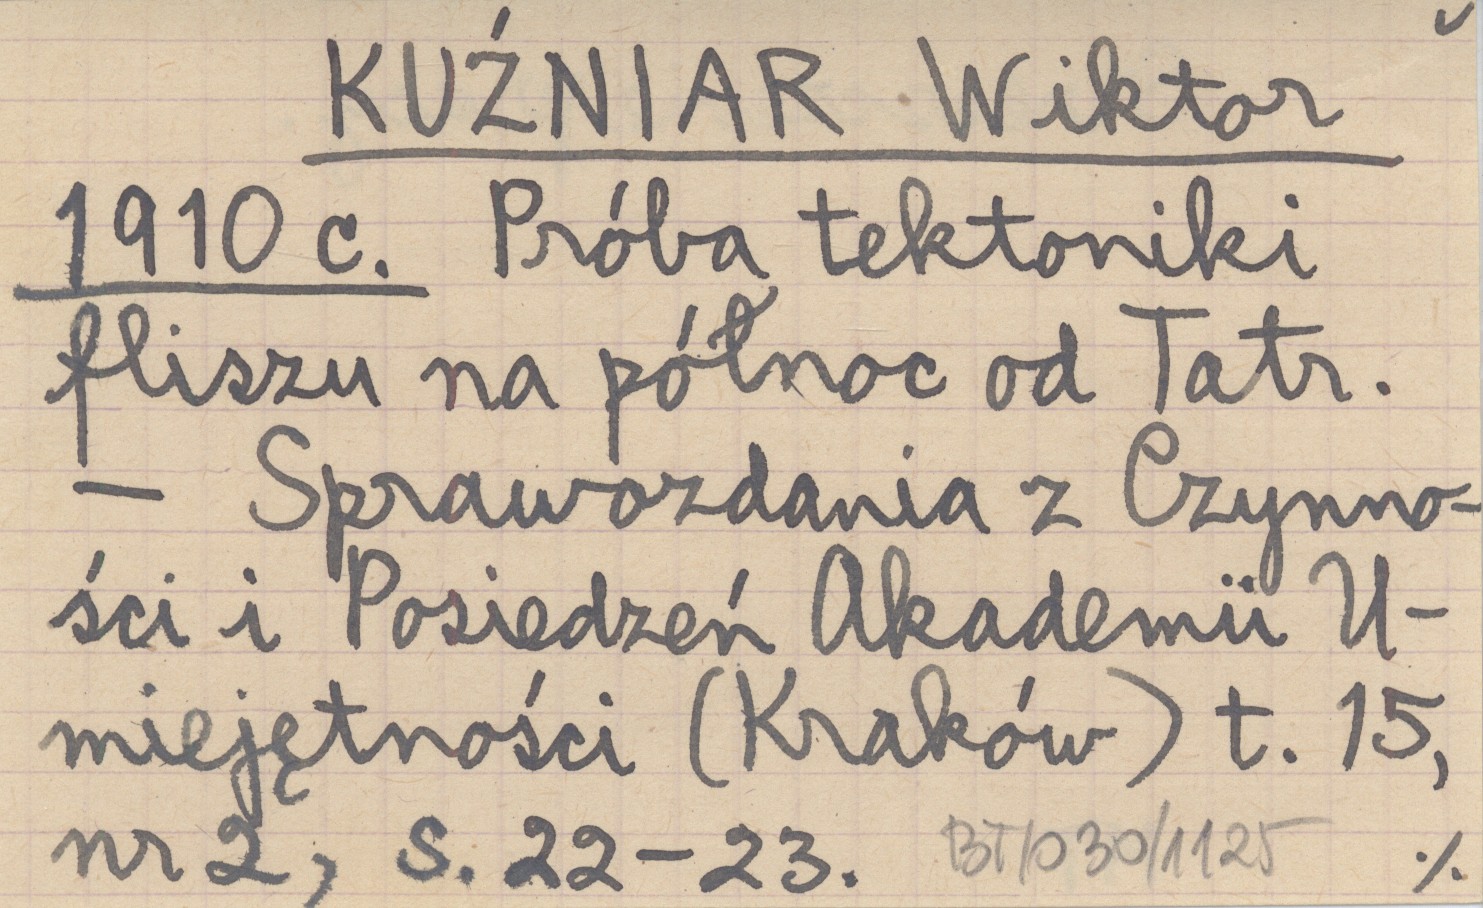 KUŹNIAR Wiktor
1910 c. Próba tektoniki
fliszu na północ od Tatr.
— Sprawozdania z Czynno-
ści i Posiedzeń Akademii U-
miejętności (Kraków) t. 15,
nr 2, s. 22-23. BT/030/1125 ./.